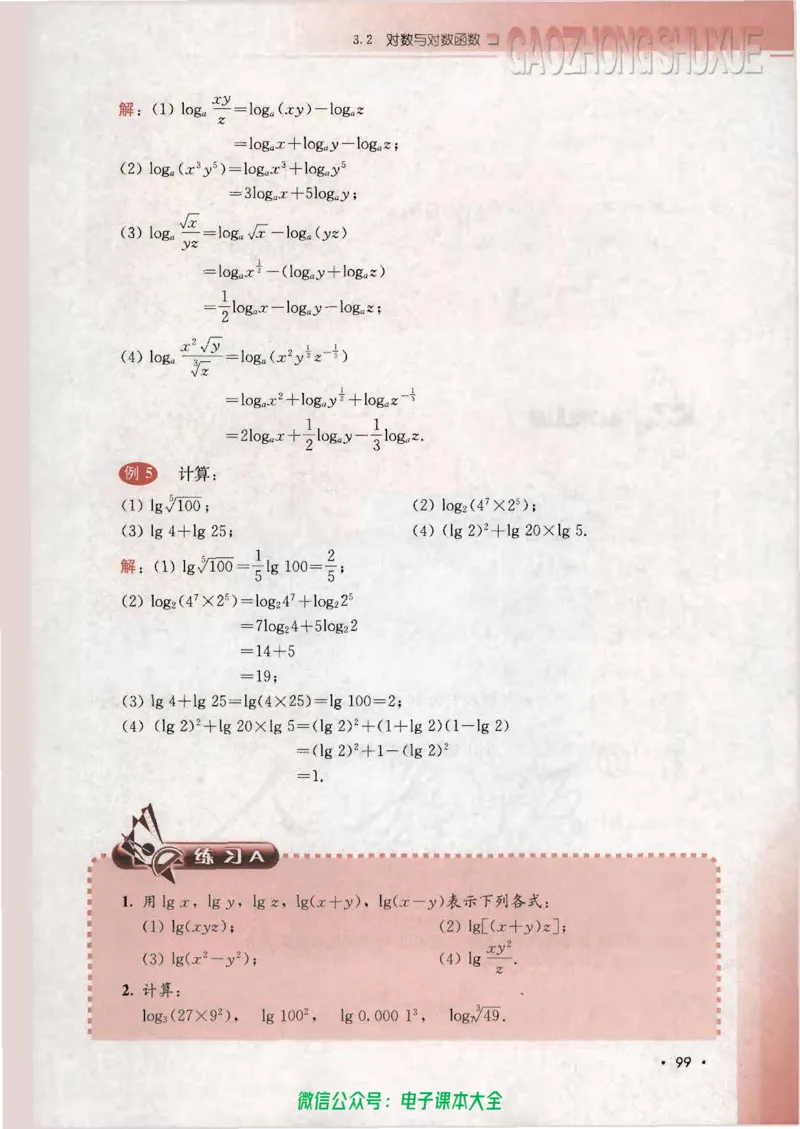 3.2 对数与对数函数
GAOZHONGSHUXUE
解：(1) logₐ xy/z =logₐ(xy)－logₐz
=logₐx＋logₐy－logₐz；
(2) logₐ(x³y⁵)=logₐx³＋logₐy⁵
=3logₐx＋5logₐy；
(3) logₐ √x/yz =logₐ √x－logₐ(yz)
=logₐx^{1/2}－(logₐy＋logₐz)
=1/2 logₐx－logₐy－logₐz；
(4) logₐ x²√y/∛z =logₐ(x²y^{1/2}z^{-1/3})
=logₐx²＋logₐy^{1/2}＋logₐz^{-1/3}
=2logₐx＋1/2 logₐy－1/3 logₐz.
例5 计算：
(1) lg ⁵√100； (2) log₂(4⁷×2⁵)；
(3) lg 4＋lg 25； (4) (lg 2)²＋lg 20×lg 5.
解：(1) lg ⁵√100=1/5 lg 100=2/5；
(2) log₂(4⁷×2⁵)=log₂4⁷＋log₂2⁵
=7log₂4＋5log₂2
=14＋5
=19；
(3) lg 4＋lg 25=lg(4×25)=lg 100=2；
(4) (lg 2)²＋lg 20×lg 5=(lg 2)²＋(1＋lg 2)(1－lg 2)
=(lg 2)²＋1－(lg 2)²
=1.
练习A
1. 用 lg x，lg y，lg z，lg(x＋y)，lg(x－y)表示下列各式：
(1) lg(xyz)； (2) lg[(x＋y)z]；
(3) lg(x²－y²)； (4) lg xy²/z.
2. 计算：
log₃(27×9²)， lg 100²， lg 0.000 1³， log₇∛49.
· 99 ·
微信公众号：电子课本大全